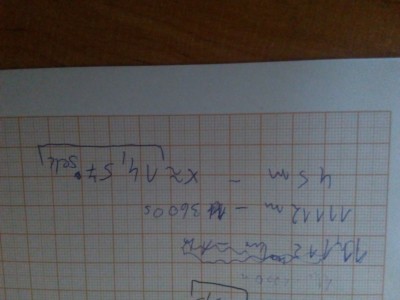 11,112 km - 1h
11112 m - 3600s
45 m - x ≈ 14,57 sek